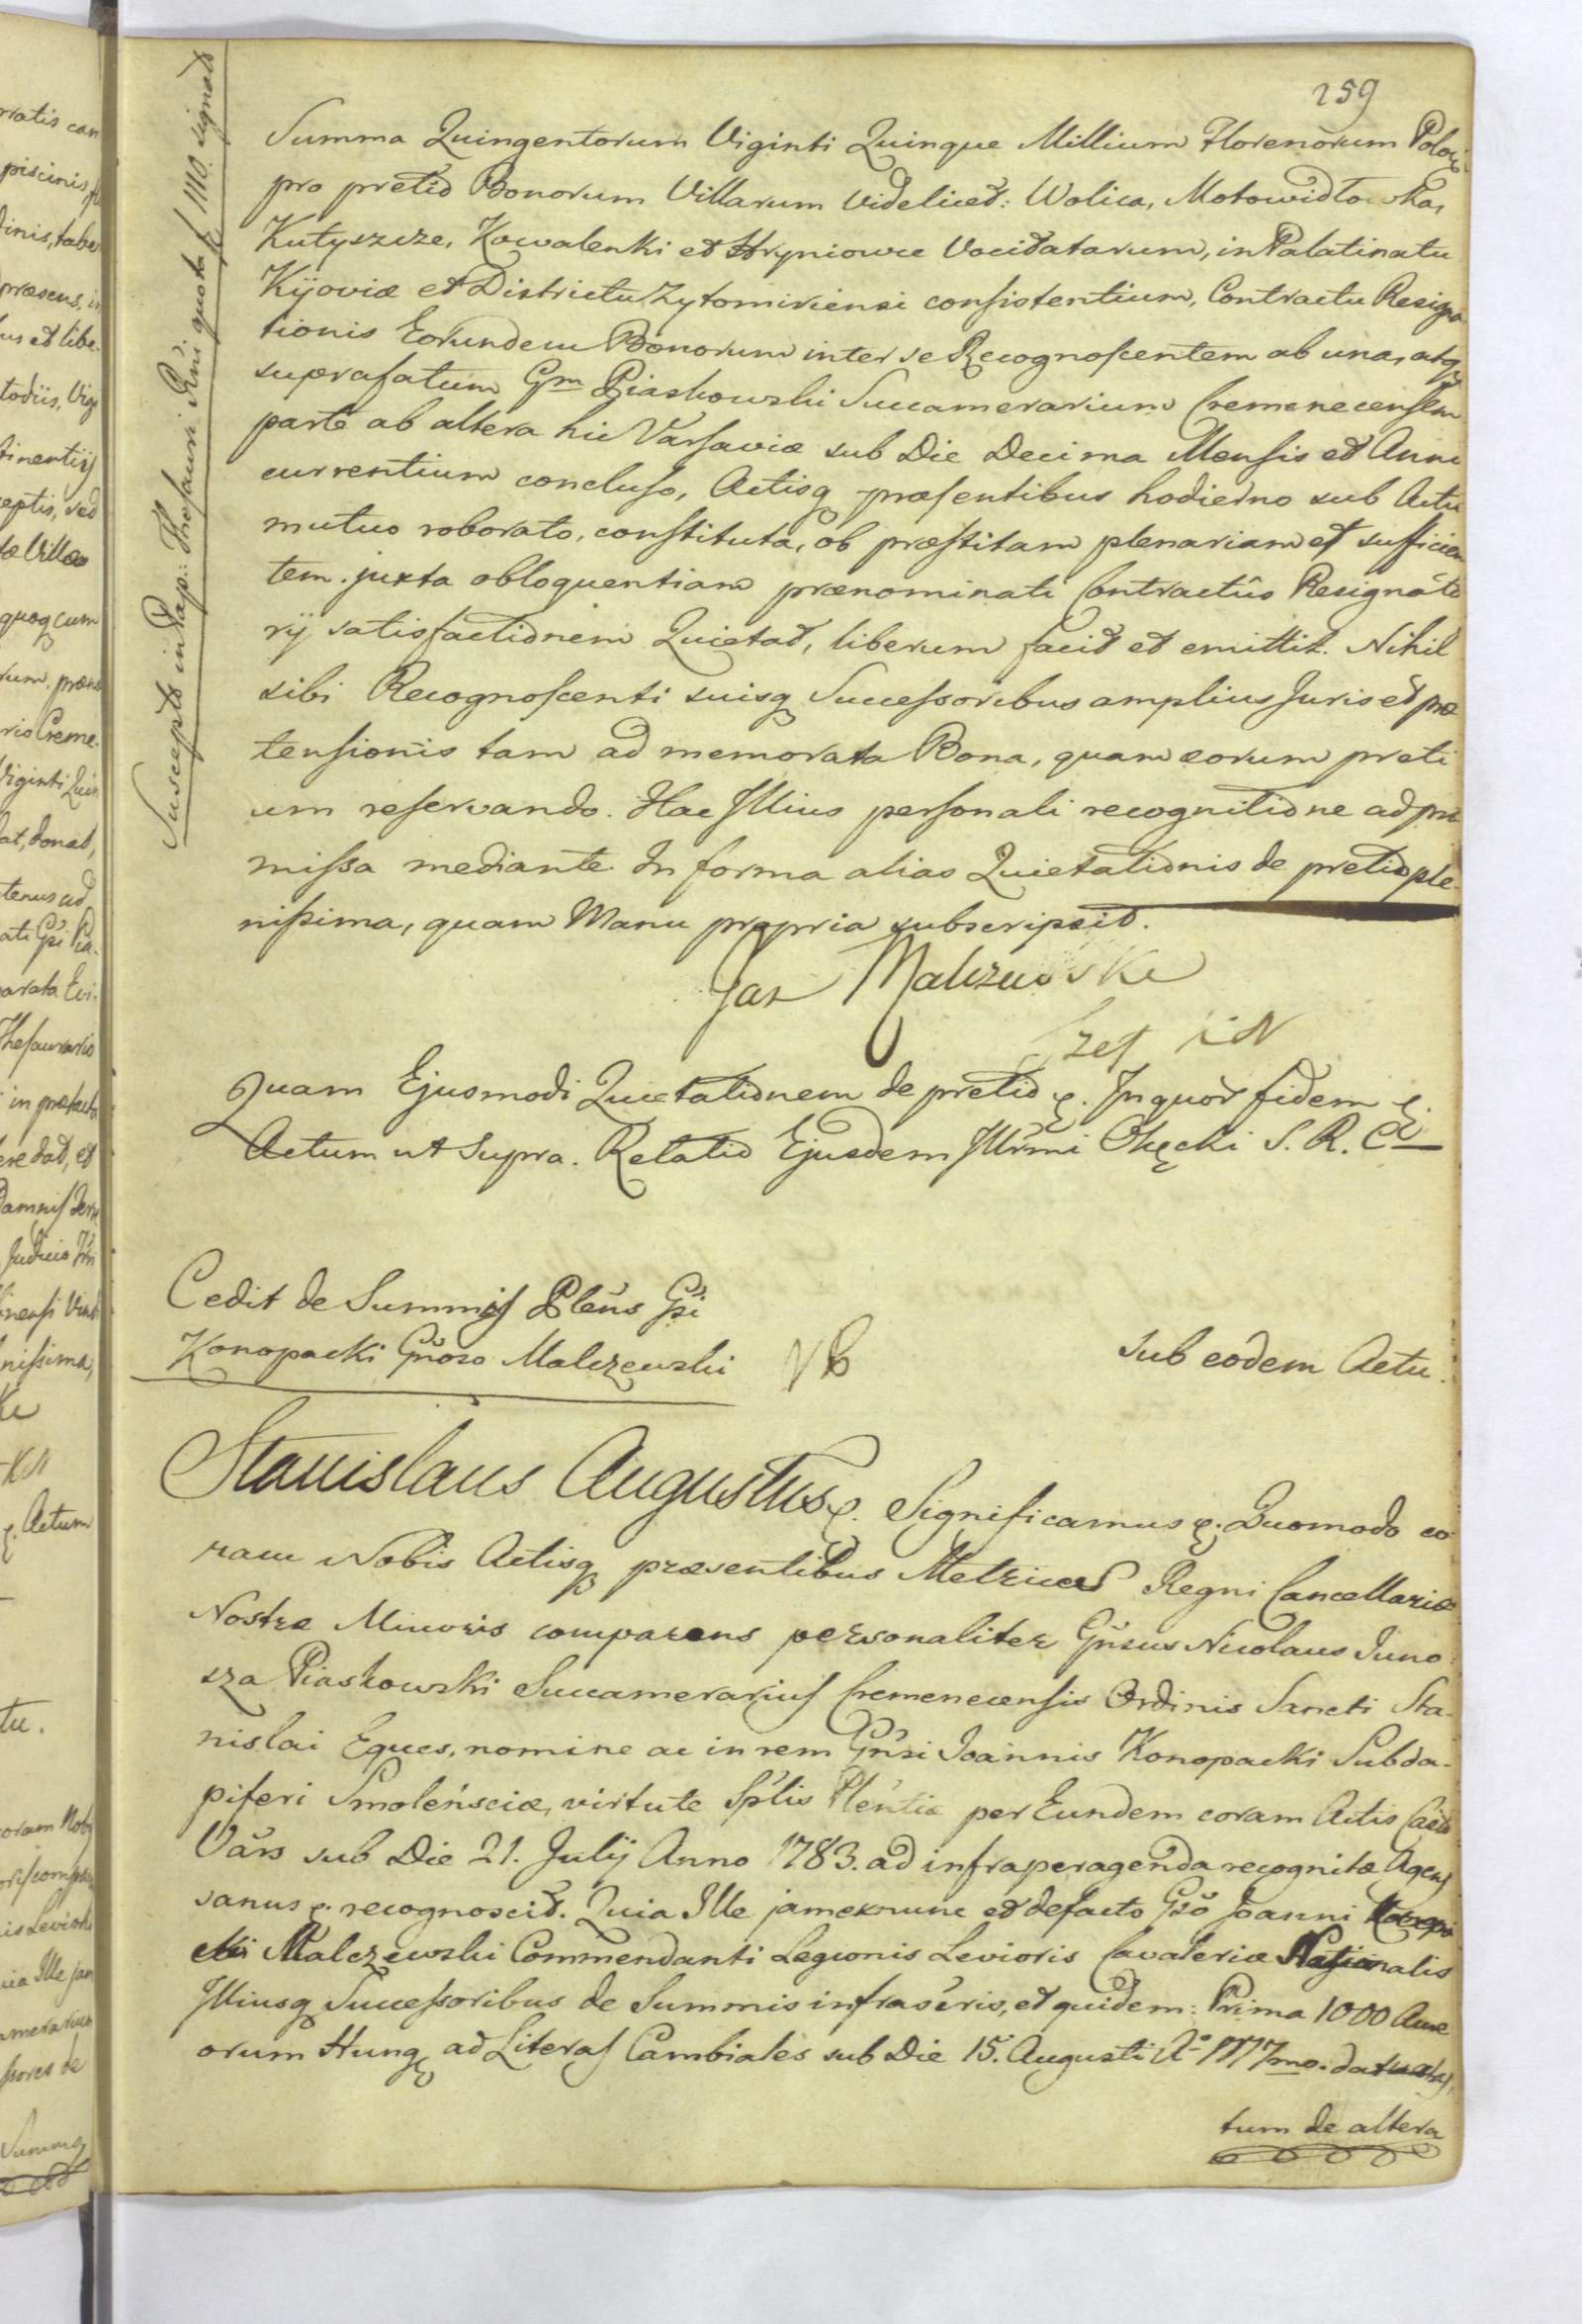 259
Summa Quingentorum Viginti Quinque Millium Florenorum Poloñ
pro pretio Bonorum Villarum videlicet: Wolica, Motowidłowka,
Kutyszcze, Kowalenki et Hryniowce Vocitatarum, in Palatinatu
Kijoviæ et Districtu Zytomiriensi consistentium, Contractu Resigna
tionis Eorundem Bonorum inter se Recognoscentem ab una, atq
suprafatum Gm Piaskowski Succamerarium Cremenecensem
parte ab altera hic Varsaviæ sub Die Decima Mensis et Anni
currentium concluso, Actisq præsentibus hodierno sub Actu
mutuo roborato, constituta, ob præstitam plenariam et sufficien
tem juxta obloquentiam prænominati Contractûs Resignato
rij satisfactionem Quietat, liberum facit et emittit. Nihil
sibi Recognoscenti suisq Successoribus amplius Juris et præ
tensionis tam ad memorata Bona, quam eorum preti
um reservando. Hac Illius personali recognitione ad præ
missa mediante. In forma alias Quietationis de pretio ple
nissima, quam Manu propria subscripsit.
Jan Malczewski
Quam Ejusmodi Quietationem de pretio &. In quor fidem &.
Actum ut supra. Relatio Ejusdem Illrmi Okęcki S. R. C
Suscepta in Pap: Thesauri Rni quota f 1110. signato
Cedit de Summis Pleñs Gsi
Konopacki Gñoso Malczewski
sub eodem Actu.
Stanislaus Augustus &. Significamus &. Quomodo co
ram Nobis Actisq præsentibus Metrices Regni Cancellariæ
Nostræ Minoris comparens personaliter Gñsus Nicolaus Juno
sza Piaskowski Succamerarius Cremenecensis Ordinis Sancti Sta-
nislai Eques, nomine ac in rem Gñsi Joannis Konopacki Subda-
piferi Smoleńsciæ, virtute Splis Plentiæ per Eundem coram Actis Castr
Vars sub Die 21. Julij Anno 1783. ad infraperagenda recognitæ Agens
sanus &. recognoscit. Quia Ille jam exnunc et defacto Gso Joanni
Malczewski Commendanti Legionis Levioris Cavaleriæ Nationalis
Illiusq Successoribus de Summis infrascris, et quidem: Prima 1000 Aure
orum Hung ad Literas Cambiales sub Die 15. Augusti Ao 1777mo.
tum de altera